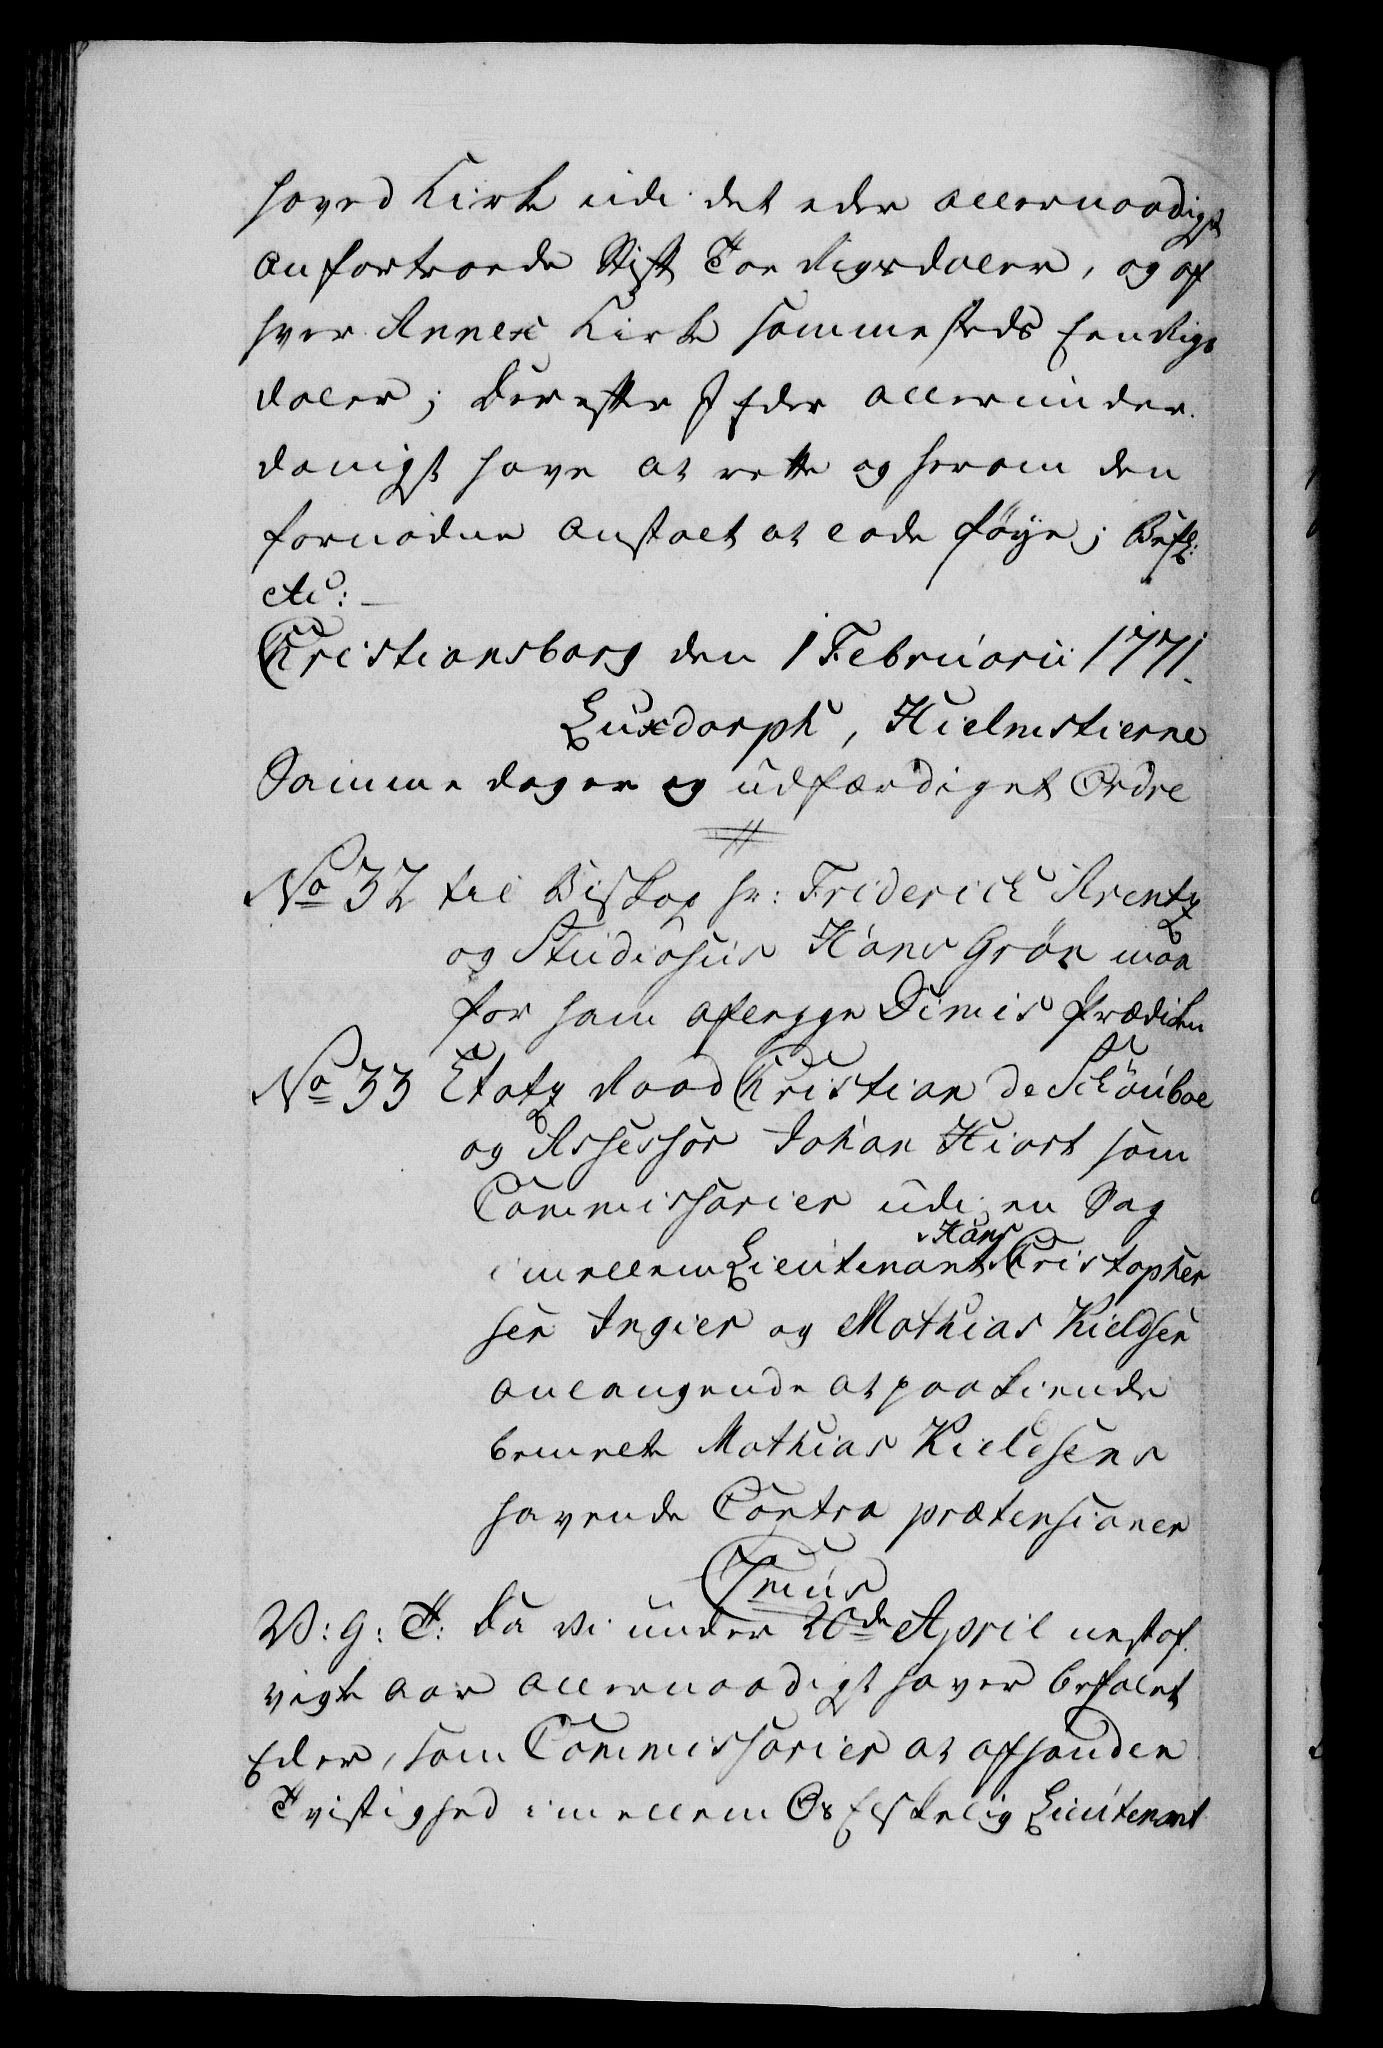 hoved Kirke udi det eder allernaadigst
anfortroede Stift Toe Rigsdaler, og af
hver Annex Kirke sammesteds Een Rigs
daler; Derefter I Eder allerunder-
danigst have at rette og herom den
fornødne Anstalt at lade føye; Befl:
etc:
Christiansborg den 1 Februarii 1771.
Luxdorph, Hielmstierne
Samme dager og udfærdiget Ordre
No 32 til Biskop hr: Friderich Arentz
og Studiosus Hans Grøn maa
for ham aflegge Dimis Prædiken
No 33 Etatz Raad Christian de Schouboe
og Assessor Johan Hiort som
Commissarier udi en Sag
imellem Lieutenant Hans Christopher
sen Ingier og Mathias Kieldsen
anlangende at paakiende
bemelte Mathias Kieldsens
havende Contra prætensioner
Tenus
W: g: T: Da Vi under 20de April nestaf-
vigte Aar allernaadigst haver befalet
Eder, som Commissarier at afhandle
Tvistighed imellem Os Elskelig Lieutenant